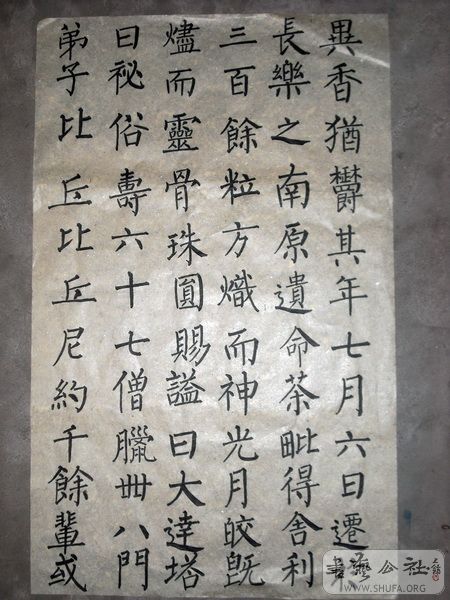 異香猶欝其年七月六日遷
長樂之南原遺命茶毗得舍利
三百餘粒方熾而神光月皎既
燼而靈骨珠圓賜謚曰大達塔
曰祕俗壽六十七僧臘卌八門
弟子比丘比丘尼約千餘輩或
書藝公社
WWW.SHUFA.ORG